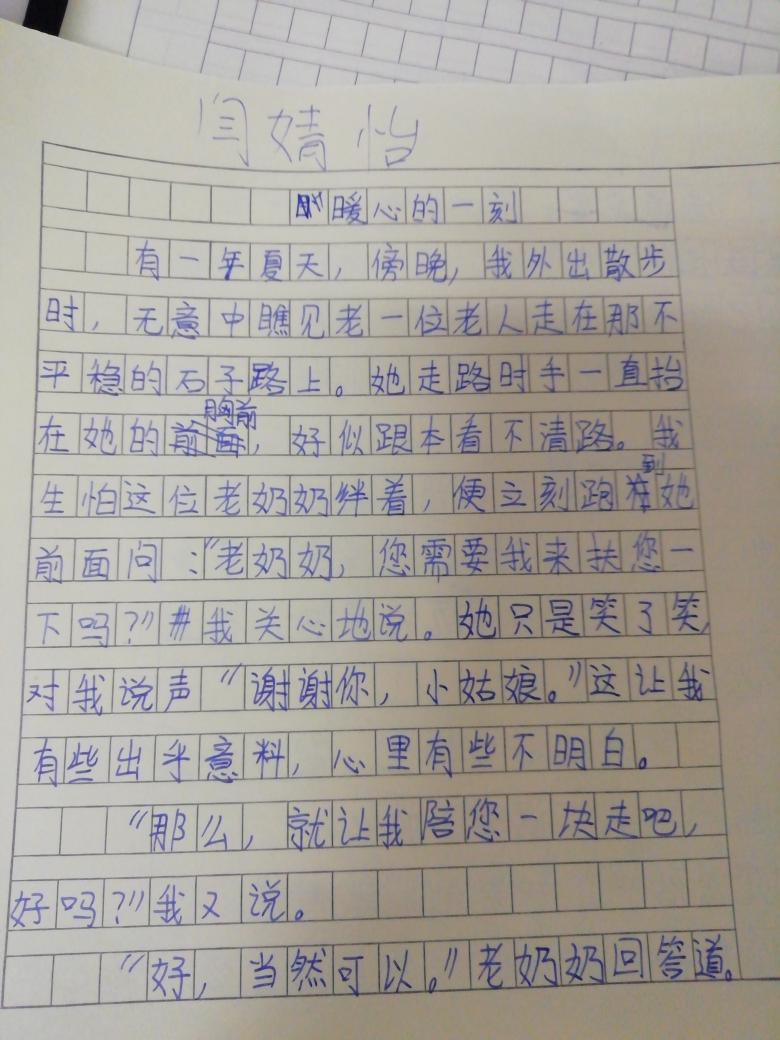 闫婧怡
暖心的一刻
有一年夏天，傍晚，我外出散步
时，无意中瞧见老一位老人走在那不
平稳的石子路上。她走路时手一直抬
在她的胸前，好似跟本看不清路。我
生怕这位老奶奶绊着，便立刻跑到她
前面问："老奶奶，您需要我来扶您一
下吗？"我关心地说。她只是笑了笑，
对我说声"谢谢你，小姑娘。"这让我
有些出乎意料，心里有些不明白。
"那么，就让我陪您一块走吧，
好吗？"我又说。
"好，当然可以。"老奶奶回答道。